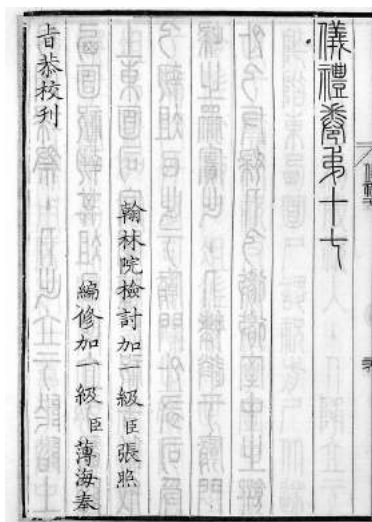 儀禮卷弟十七
翰林院檢討加一級臣張照
編修加一級臣薄海奉
旨恭校刊